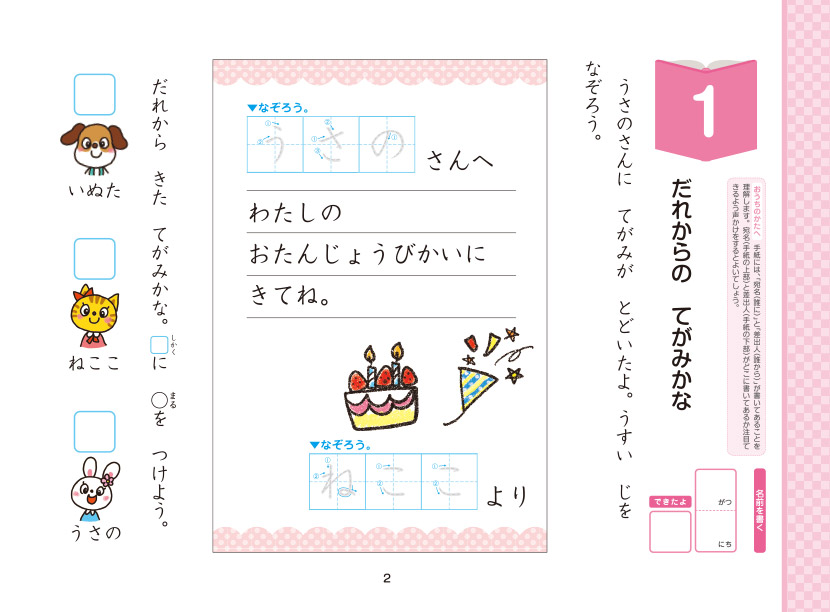 1
だれからの　てがみかな
おうちのかたへ　手紙には、「宛名（誰に）」と、「差出人（誰から）」が書いてあることを
理解します。宛名（手紙の上部）と差出人（手紙の下部）がどこに書いてあるか注目で
きるよう声かけをするとよいでしょう。
名前を書く
がつ
にち
できたよ
うさのさんに　てがみが　とどいたよ。うすい　じを
なぞろう。
▼なぞろう。
うさの さんへ
わたしの
おたんじょうびかいに
きてね。
▼なぞろう。
ねここ より
だれから　きた　てがみかな。□に　○を　つけよう。
しかく
まる
いぬた
ねここ
うさの
2